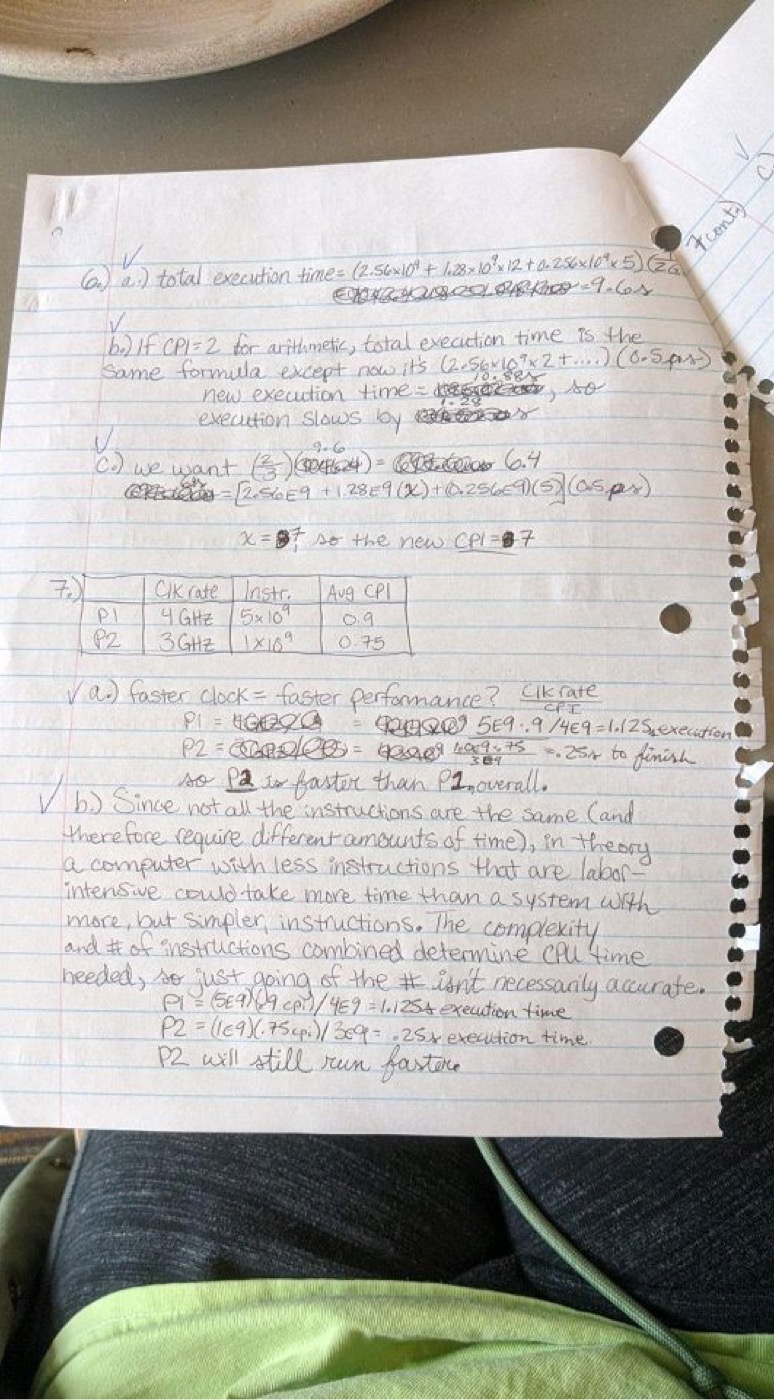 6.) a.) total execution time = (2.56x10⁹ + 1.28x10⁹x12 + 0.256x10⁹x5)
=9.6s
b.) If CPI=2 for arithmetic, total execution time is the
same formula except now it's (2.56x10⁹x2+....)(0.5ps)
new execution time = 10.88s, so
execution slows by 1.28 s
c.) we want (2/3)(9.6) = 6.4
= [2.56E9 + 1.28E9(x) + (0.256E9)(5)](0.5ps)
x = 7, so the new CPI = 7
7.) Clk rate Instr. Avg CPI
P1 4GHz 5x10⁹ 0.9
P2 3GHz 1x10⁹ 0.75
a.) faster clock = faster performance? Clk rate/CPI
P1 = = 5E9·.9/4E9=1.125s execution
P2 = = =.25s to finish
so P2 is faster than P1, overall.
b.) Since not all the instructions are the same (and
therefore require different amounts of time), in theory
a computer with less instructions that are labor-
intensive could take more time than a system with
more, but simpler, instructions. The complexity
and # of instructions combined determine CPU time
needed, so just going of the # isn't necessarily accurate.
P1 = (5E9)(.9 cpi)/4E9 = 1.125s execution time
P2 = (1E9)(.75cpi)/3E9 = .25s execution time.
P2 will still run faster.
7cont)
c)